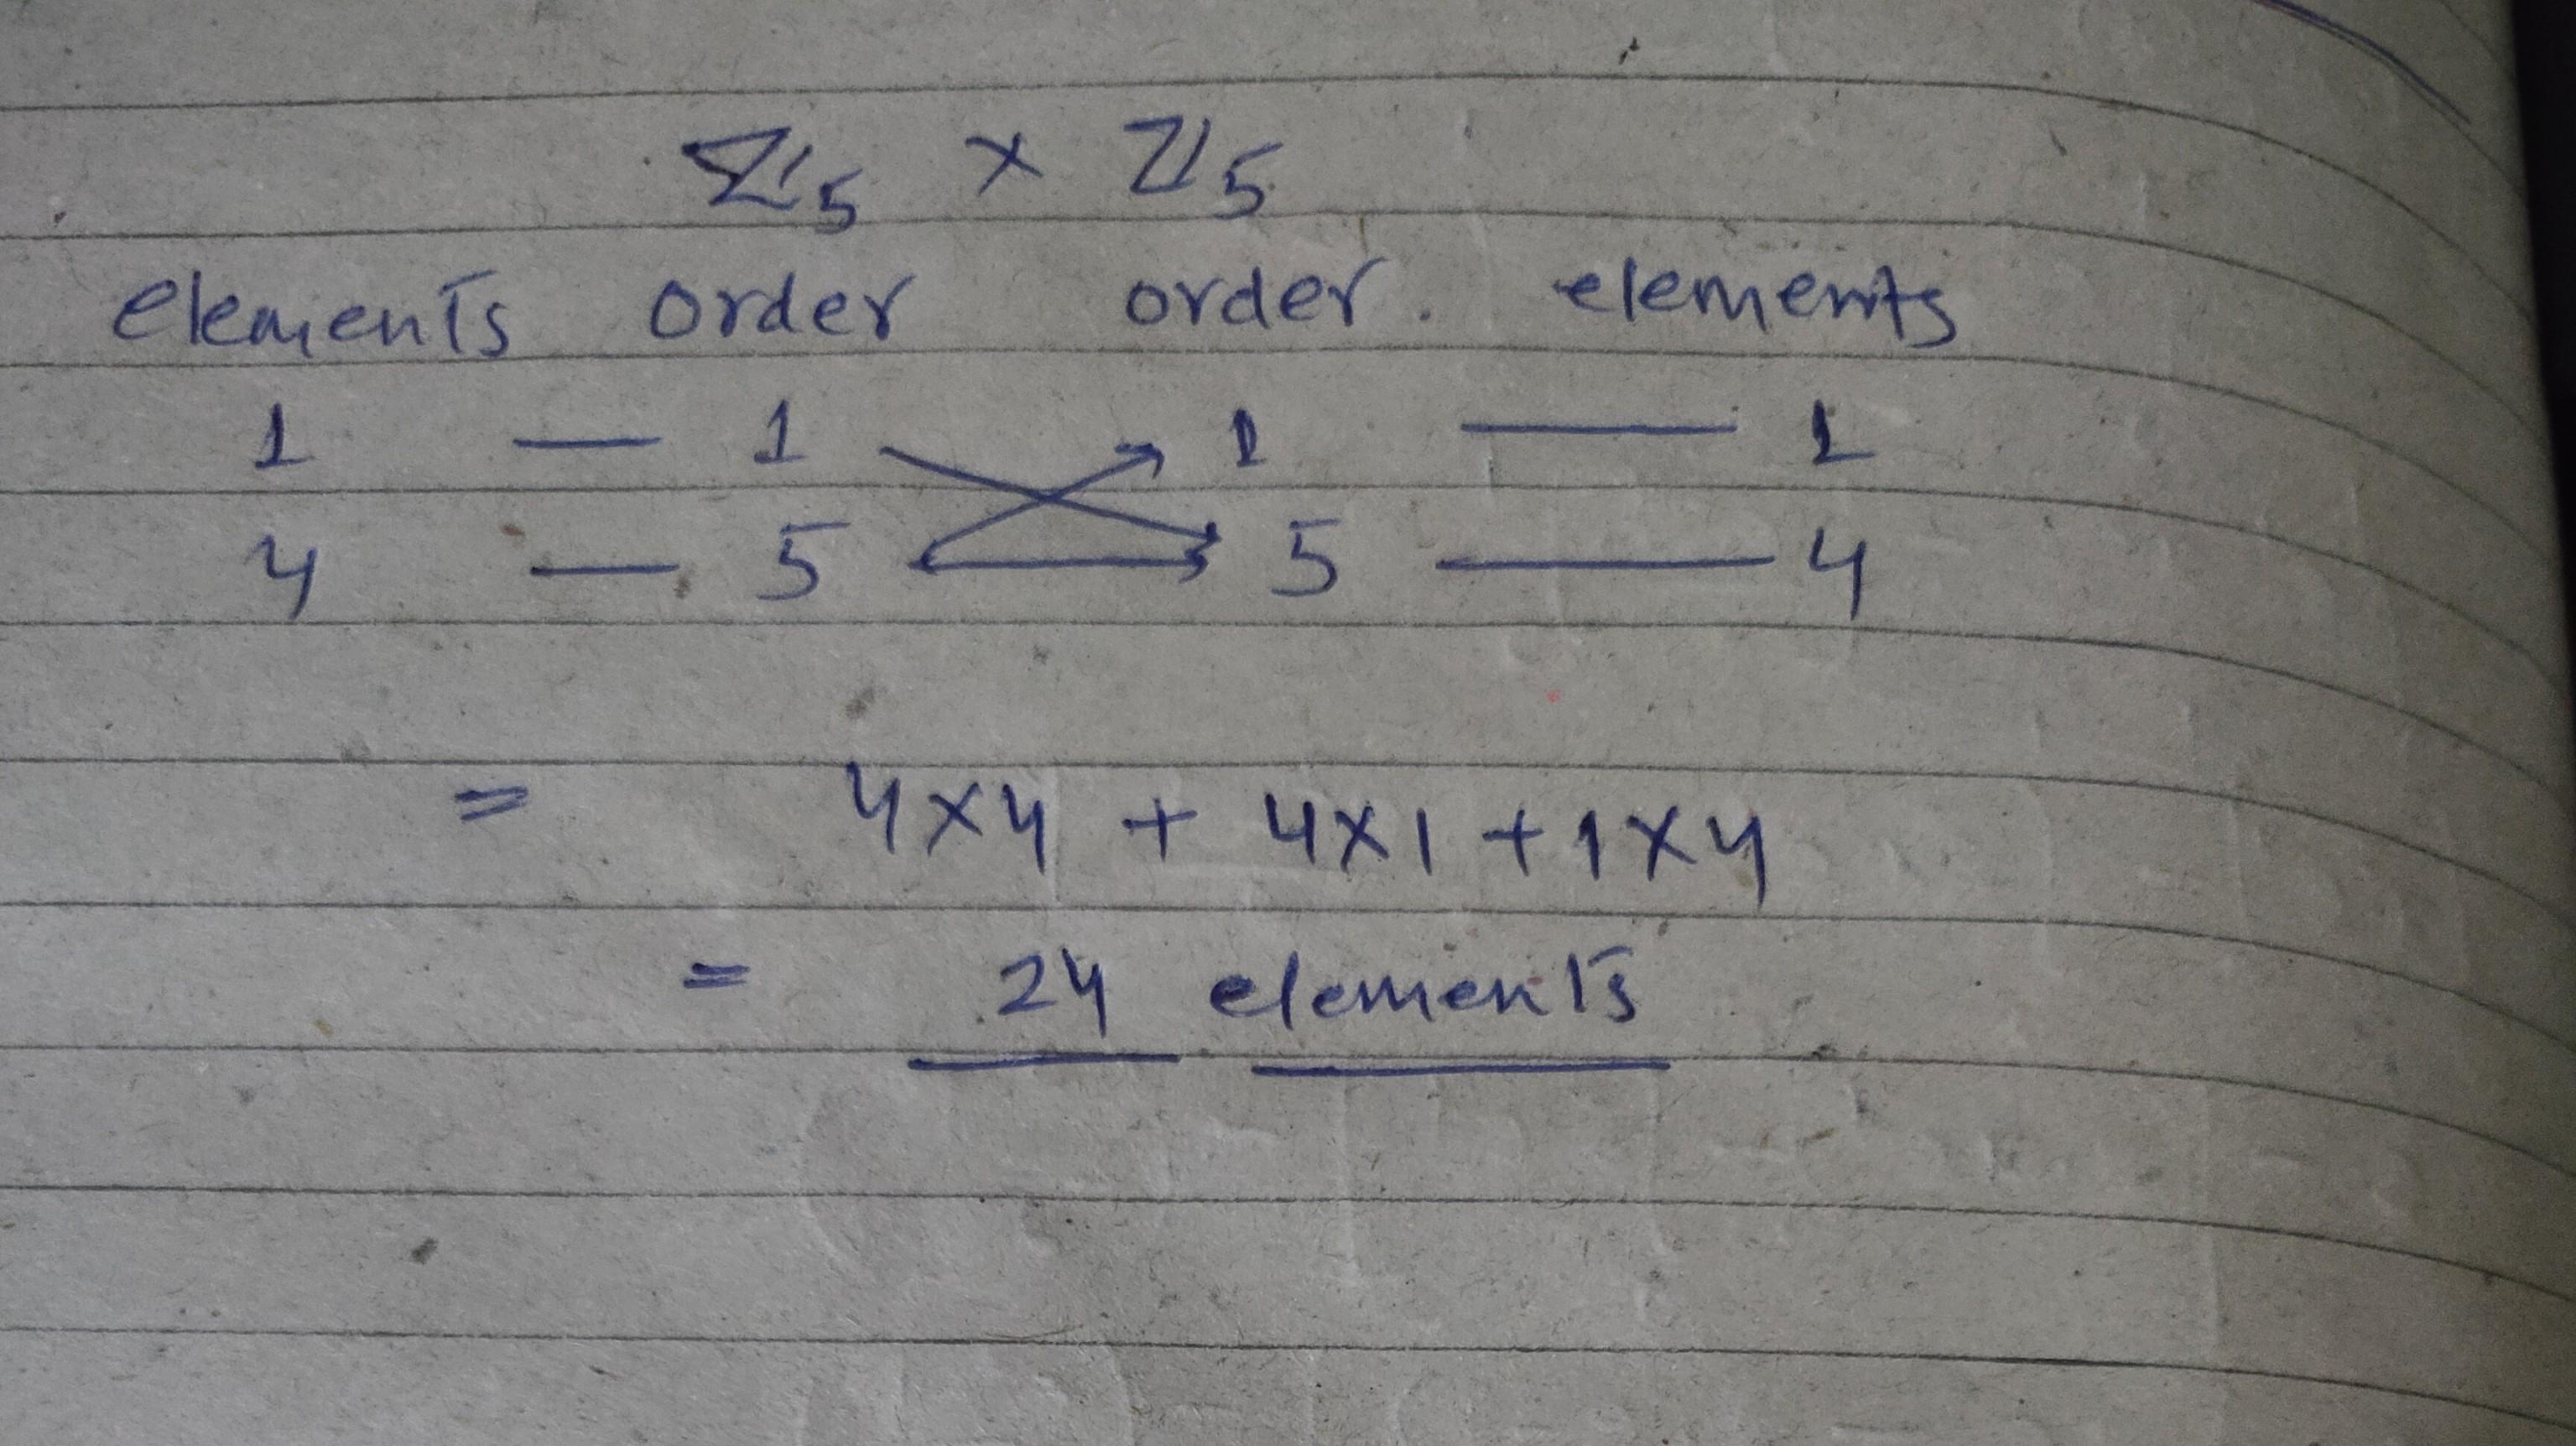 ℤ₅ × ℤ₅
elements order order. elements
1 — 1 1 — 1
4 — 5 5 — 4
= 4×4 + 4×1 + 1×4
= 24 elements